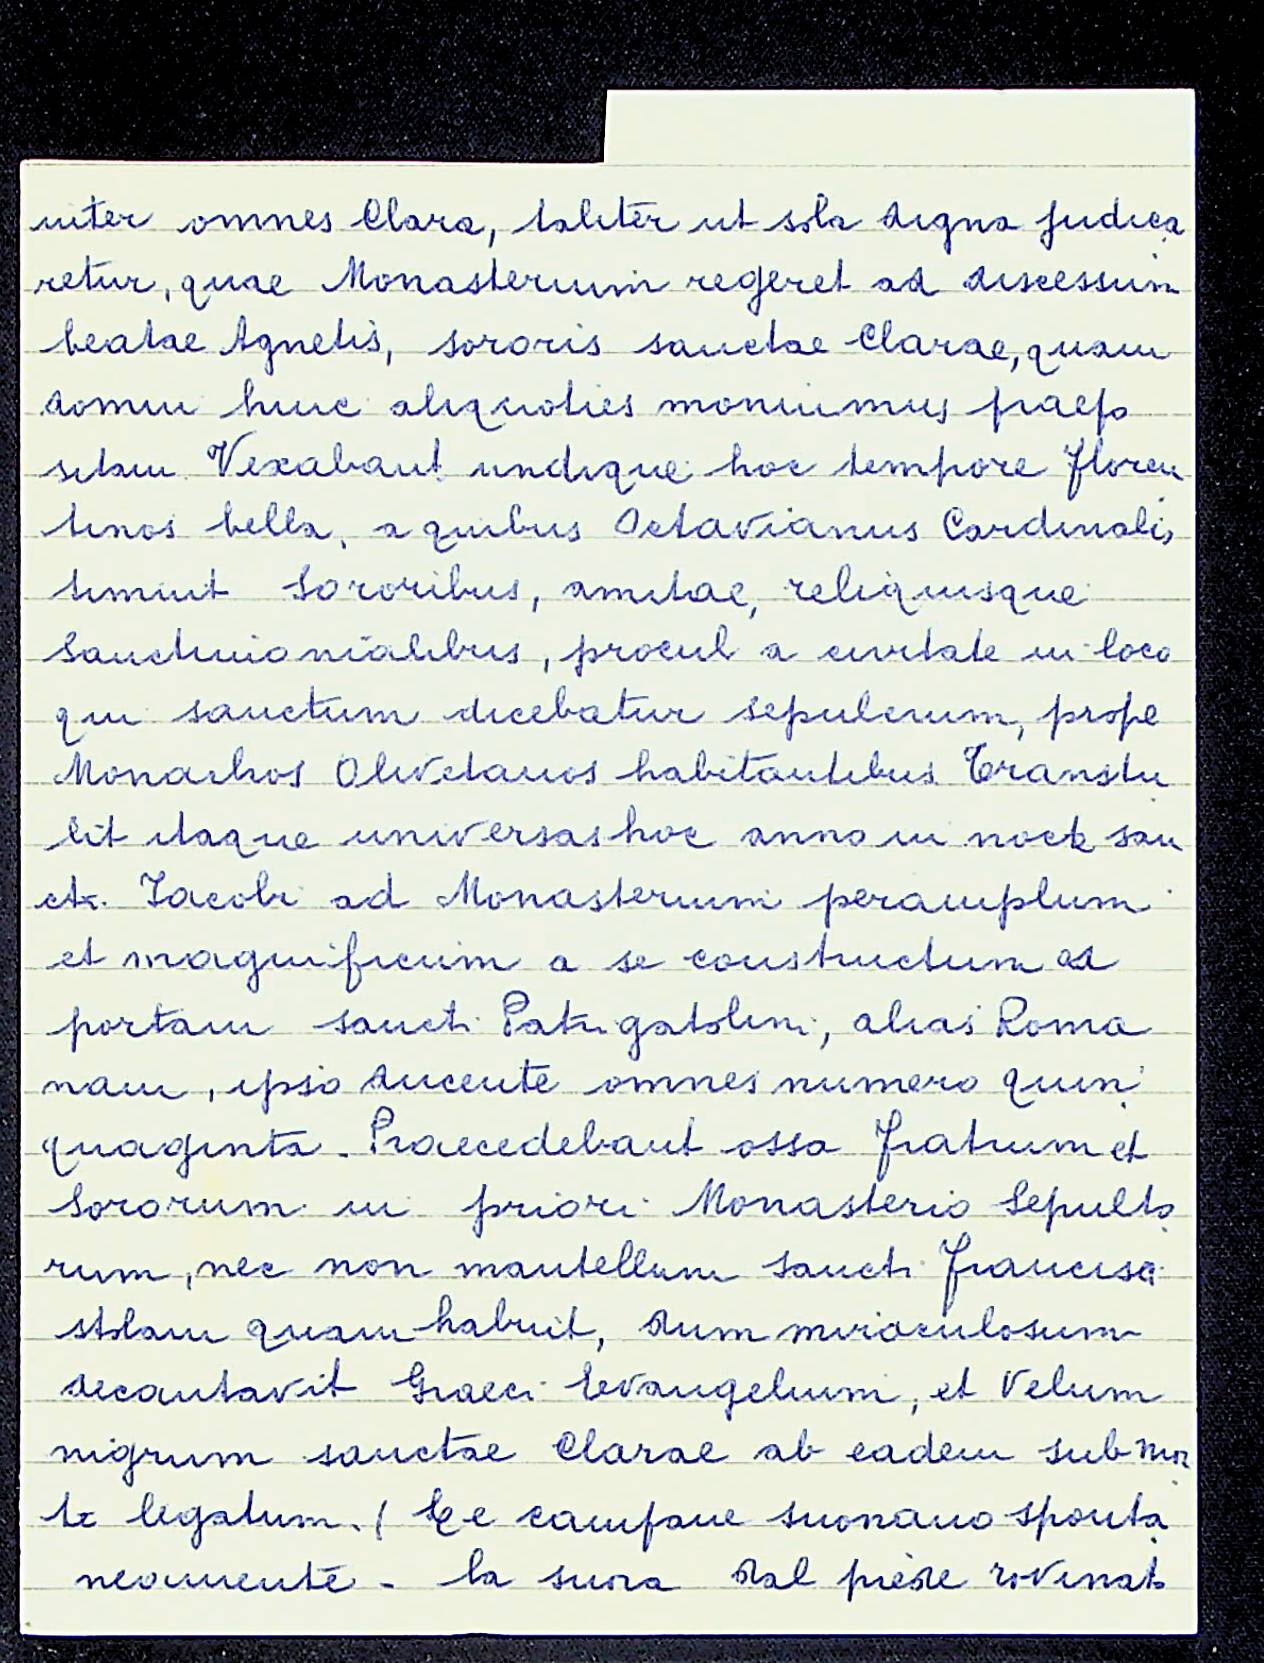 inter omnes Clara, taliter ut sola digna judica
retur, quae Monasterium regeret ad discessum
beatae Agnetis, sororis sanctae Clarae, quam
domui huic aliquoties monuimus praepo
sitam Vexabant undique hoc tempore Floren
tinos bella, a quibus Octavianus Cardinalis
timuit Sororibus, amitae, reliquisque
Sanctimonialibus, procul a civitate in loco
qui sanctum dicebatur sepulcrum, prope
Monachos Olivetanos habitantibus. Transtu
lit itaque universas hoc anno in nocte san
cti Iacobi ad Monasterium peramplum
et magnificum a se constructum ad
portam sancti Petri gatolini, alias Roma
nam, ipso ducente omnes numero quin
quaginta. Praecedebant ossa Fratrum et
Sororum in priori Monasterio Sepulto
rum, nec non mantellum sancti Francisci
stolam quam habuit, dum miraculosum
decantavit Graeci Evangelium, et Velum
nigrum sanctae Clarae ab eadem sub mor
te legatum. ( Le campane suonano sponta
neamente - la suora dal piede rovinato